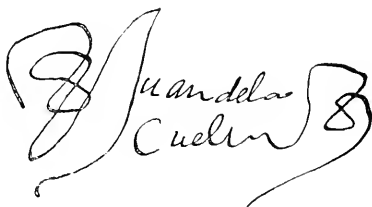 Juan dela
Cueva